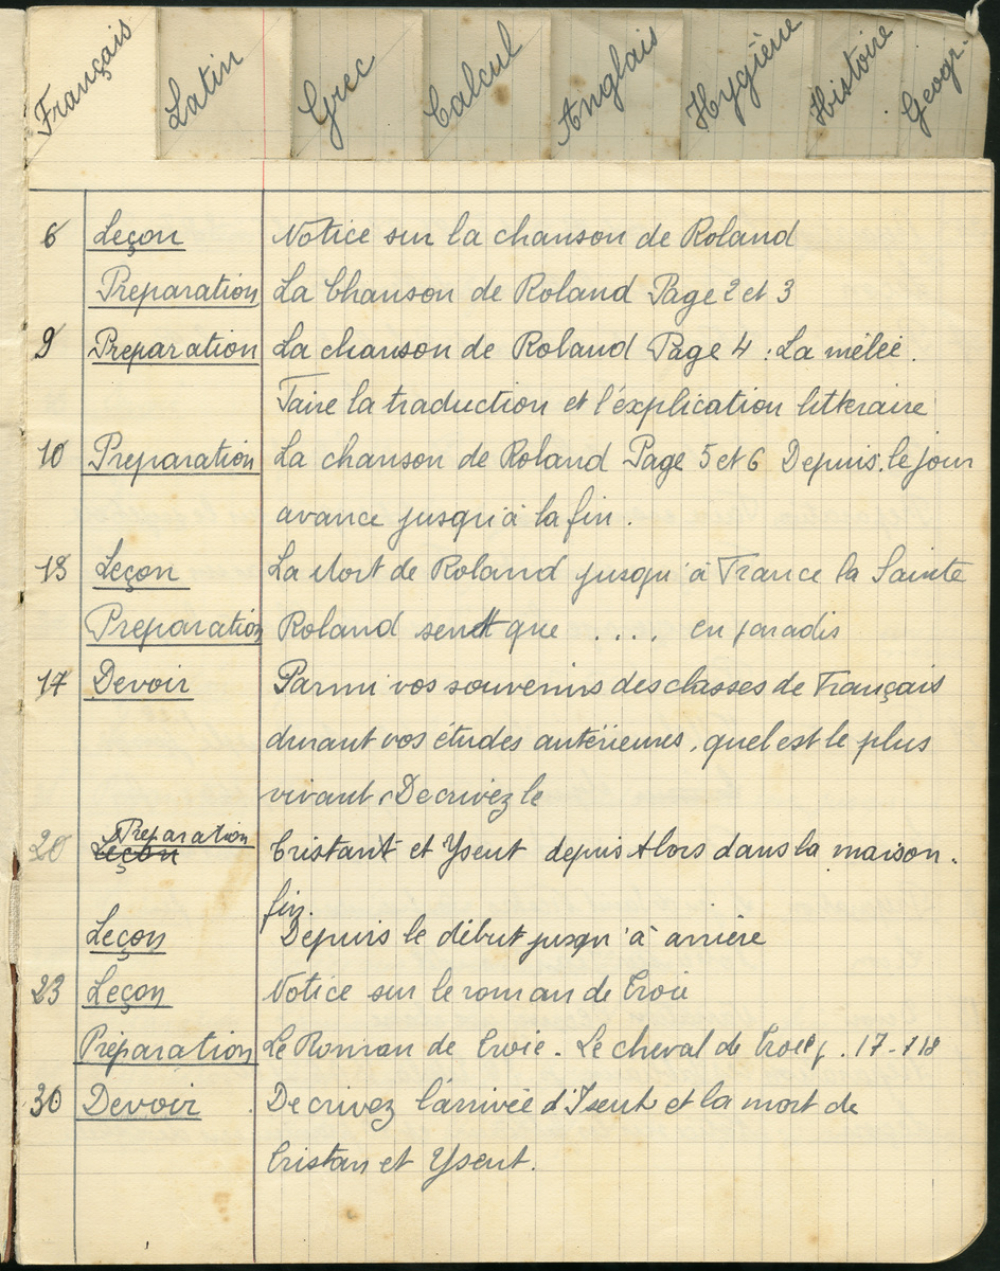 Français Latin Grec Calcul Anglais Hygiène Histoire Geogr.
6 Leçon Notice sur la chanson de Roland
Preparation La Chanson de Roland Page 2 et 3
9 Preparation La chanson de Roland Page 4 : La mêlée.
Faire la traduction et l'explication litteraire
10 Preparation La chanson de Roland Page 5 et 6 Depuis le jour
avance jusqu'à la fin.
13 Leçon La Mort de Roland jusqu'à France la Sainte
Preparation Roland sent que .... en paradis
17 Devoir Parmi vos souvenirs des classes de Français
durant vos études antérieures, quel est le plus
vivant, Decrivez le
20 Leçon Preparation Tristant et Yseut depuis Alors dans la maison.
fin.
Leçon Depuis le début jusqu'à arrière
23 Leçon Notice sur le roman de Troie
Préparation Le Roman de Troie. Le cheval de Troie p. 17-18
30 Devoir Decrivez l'arrivée d'Iseut et la mort de
Tristan et Yseut.